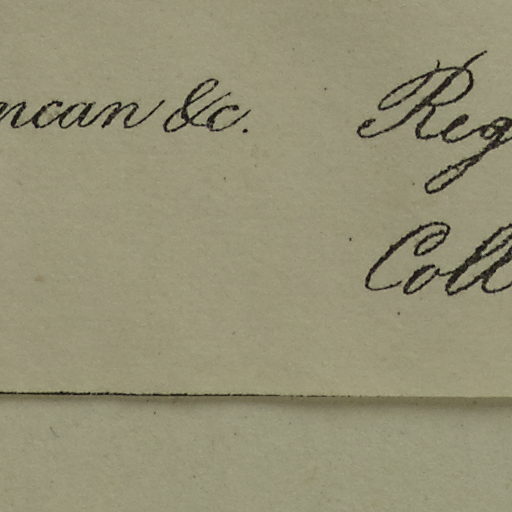 ncan &c. Reg
Coll